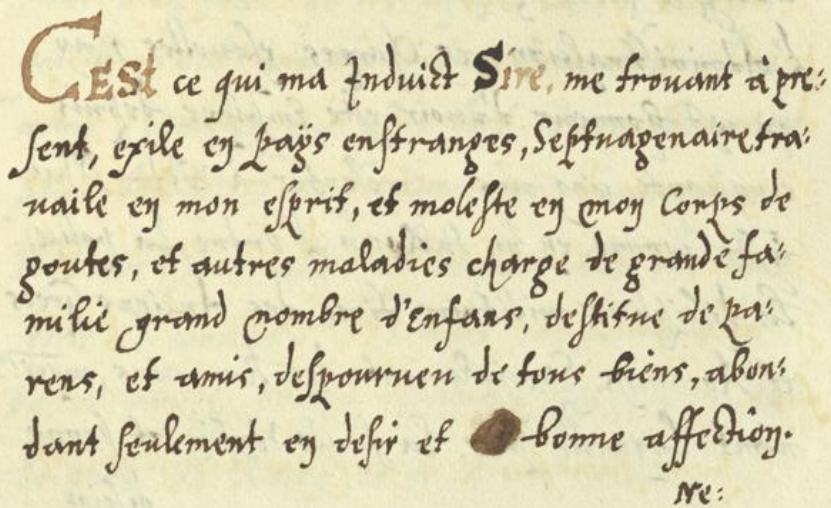 CESt ce qui ma Induict Sire, me trouant à pre:
sent, exile en païs enstranges, Septuagenaire tra:
uaile en mon esprit, et moleste en mon Corps de
goutes, et autres maladies charge de grande fa:
milie grand nombre d'Enfans, destitue de pa:
rens, et amis, despourueu de tous biens, abon:
dant seulement en desir et bonne affection.
Ne: